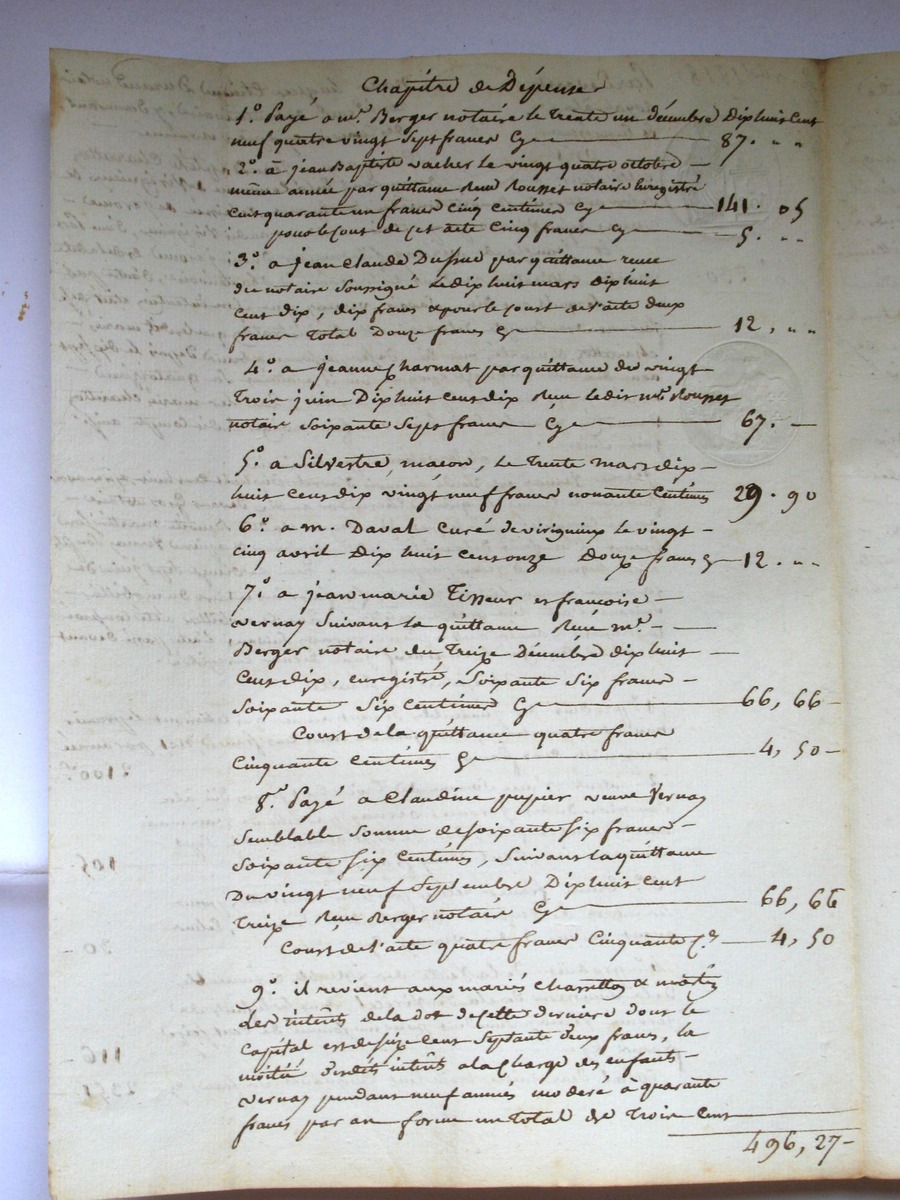 Chapitre de Dépense
1.° Payé a m.e Berger notaire le trente un décembre Dix huit Cent
neuf quatre vingt Sept francs Cy 87. " "
2.° à jean Baptiste vacher le vingt quatre octobre
même année par quittance Reçue Rousset notaire Enregistré
Cent quarante un francs Cinq Centimes Cy 141. 05
pour le Cout de Cet acte Cinq francs Cy 5. " "
3.° a jean Claude par quittance reçue
du notaire Soussigné le dix huit mars dix huit
Cent dix, dix francs & pour le Cout de l'acte deux
francs Total Douze francs Cy 12, " "
4.° a jeanne Charmat par quittance du vingt
trois juin Dix huit Cent dix Reçue ledit m.e Rousset
notaire Soixante Sept francs Cy 67. –
5.° a Silvestre, maçon, le trente mars dix –
huit Cent dix vingt neuf francs nonante Centimes 29. 90
6.° a m. Daval Curé de virigneux le vingt –
cinq avril Dix huit Cent onze Douze francs Cy 12. " "
7.° a jean marie Tisseur et francoise –
vernay Suivant la quittance Reçue m.e –
Berger notaire du treize Décembre dix huit –
Cent dix, enregistré, Soixante Six francs –
Soixante Six Centimes Cy 66, 66 –
Cout de la quittance quatre francs
Cinquante Centimes Cy 4, 50 –
8.° Payé a Claudine pupier veuve Vernay
Semblable Somme de Soixante Six francs –
Soixante Six Centimes, Suivant la quittance
Du vingt neuf Septembre Dix huit Cent
Treize Reçue Berger notaire Cy 66, 66
Cout de l'acte quatre francs Cinquante C.es 4, 50
9.° il revient aux mariés &
des intérêts de la dot de cette derniere dont le
Capital est de Seize Cent Septante deux francs, la
moitié desdits intérêts a la Charge des enfants –
vernay pendant neuf années modéré à quarante
francs par an forme un total de Trois Cent
496, 27 –